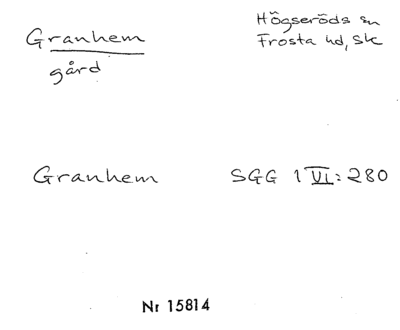 Granhem
gård
Högseröds sn
Frosta hd, Sk
Granhem
SGG 1 VI: 280
Nr 15814